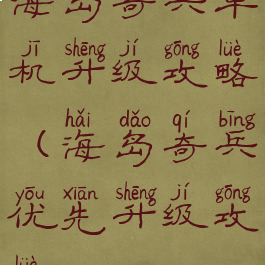 海岛奇兵单
jī shēng jí gōng lüè
机升级攻略
hǎi dǎo qí bīng
（海岛奇兵
yōu xiān shēng jí gōng
优先升级攻
lüè